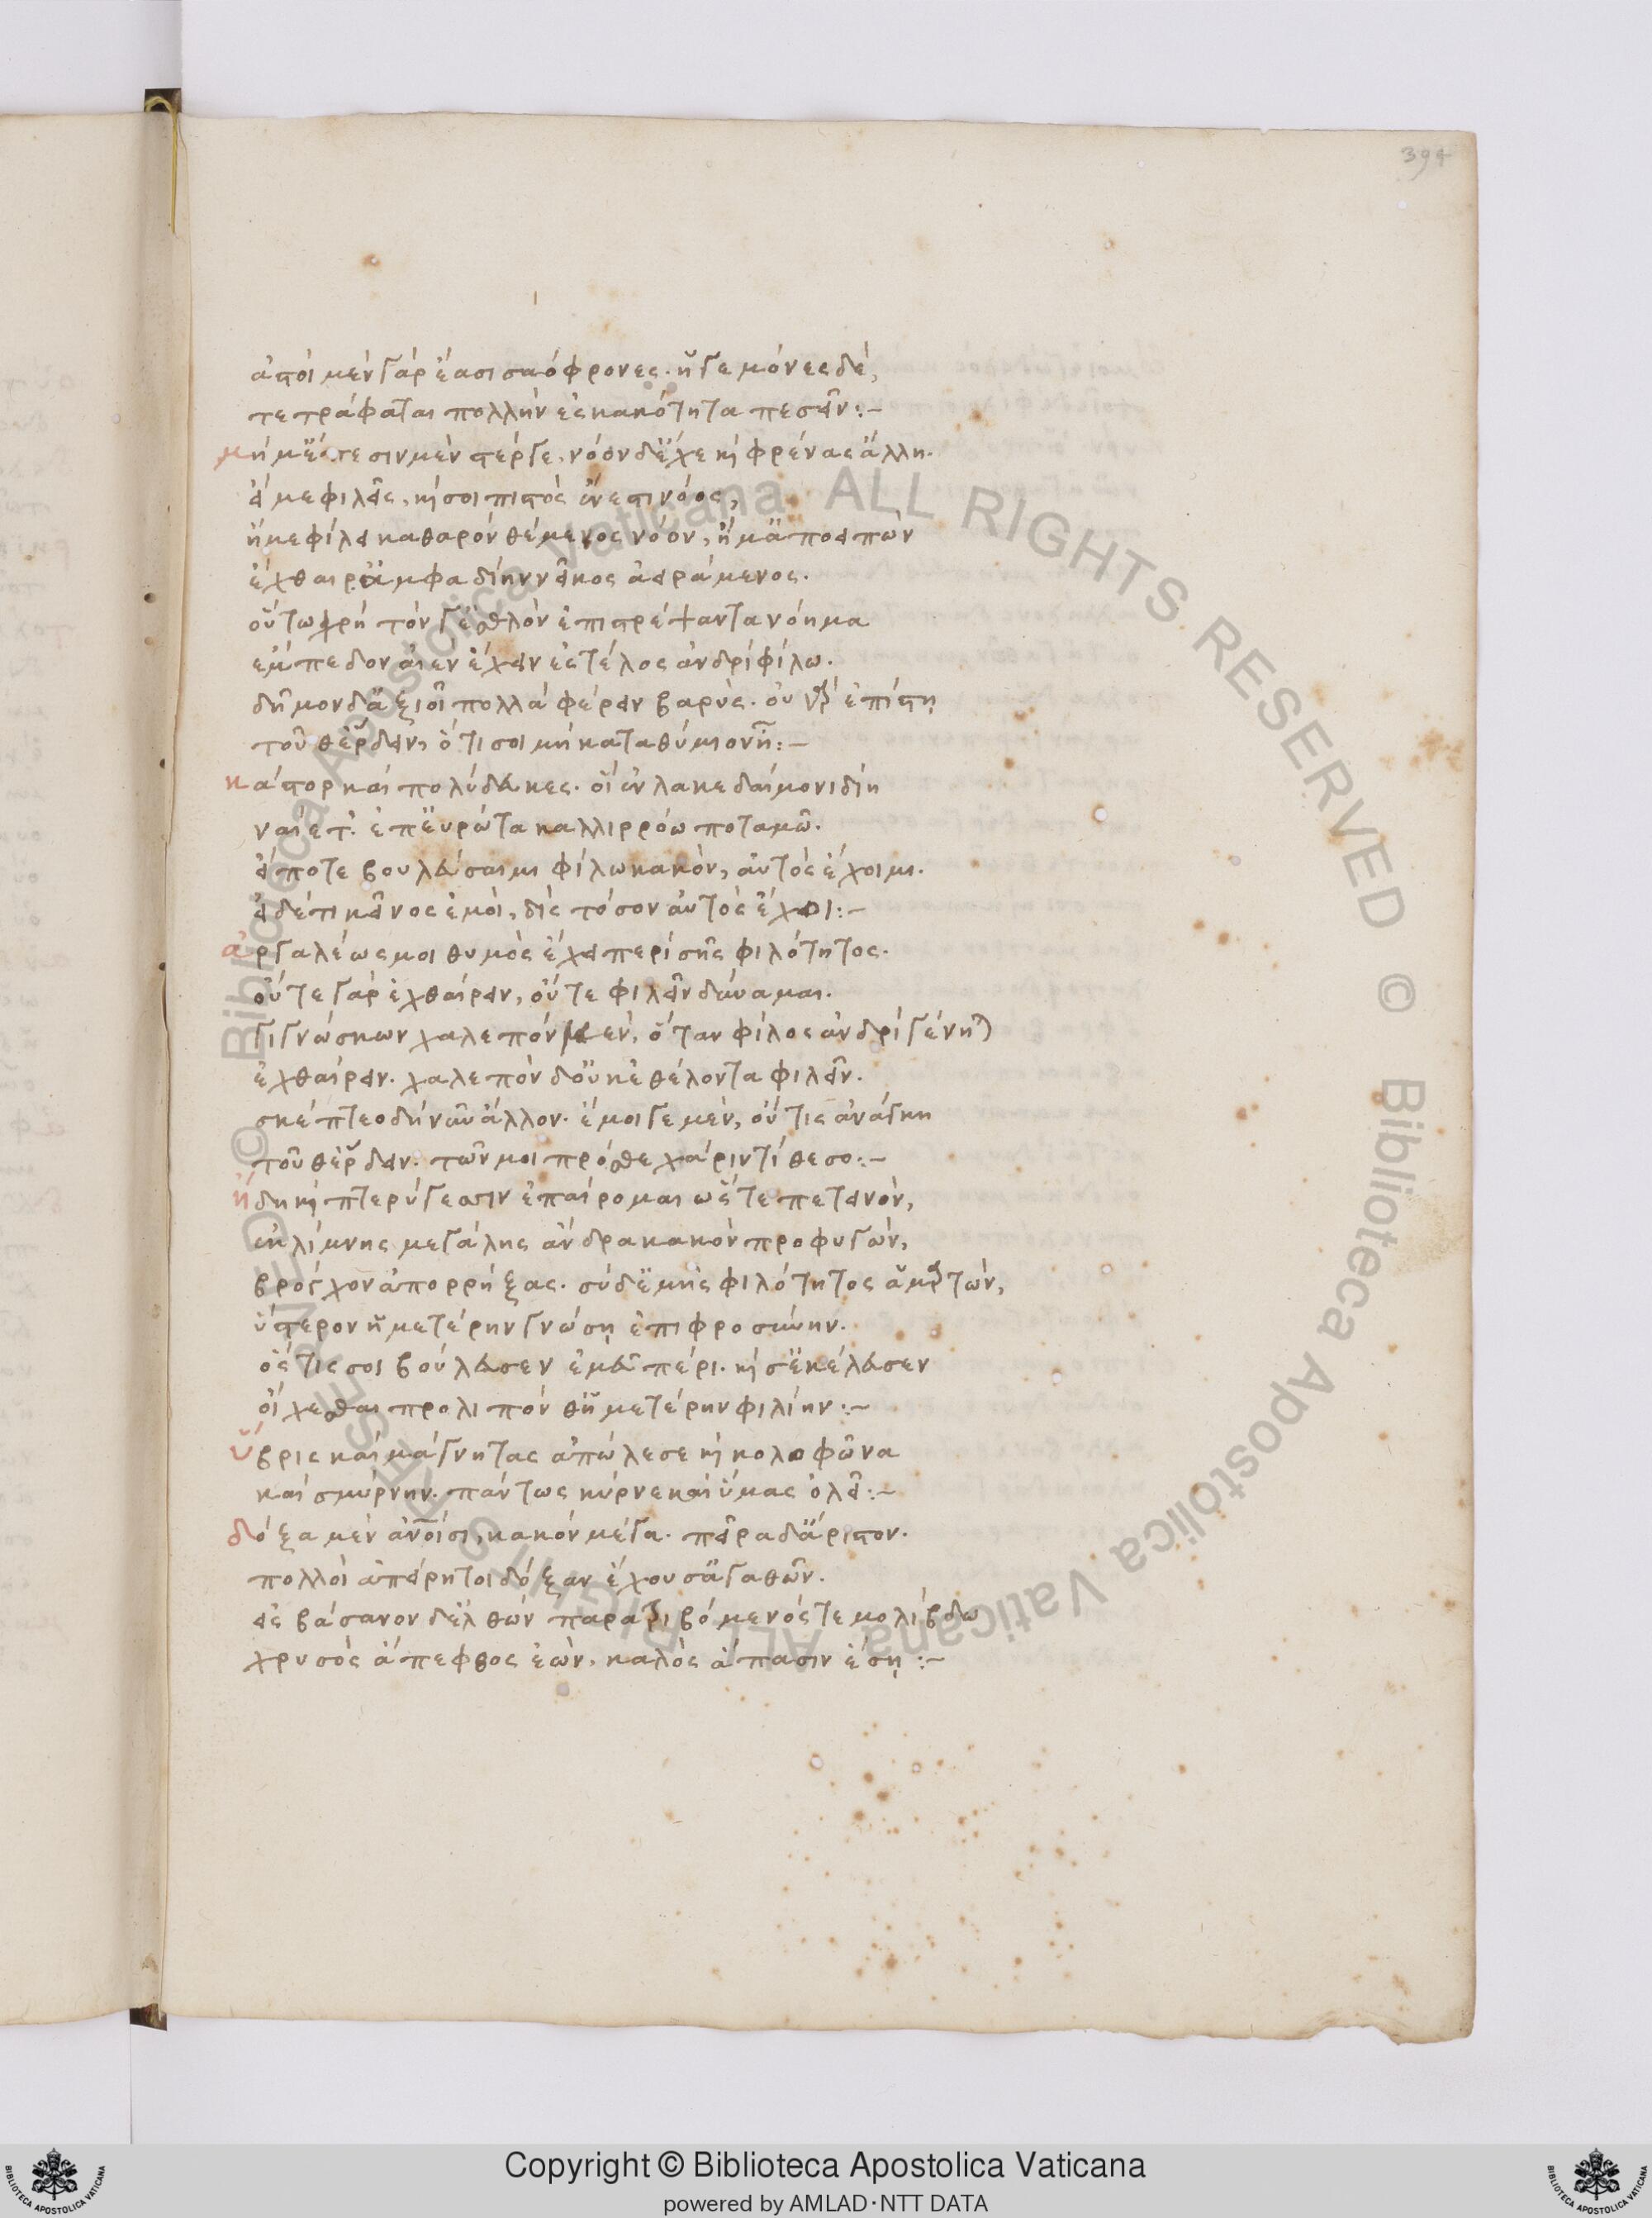 394
ἀστοὶ μὲν γὰρ ἔασι σαόφρονες. ἡγεμόνες δὲ,
τετράφαται πολλὴν ἐς κακότητα πεσεῖν:-
μή μ' ἔπεσιν μὲν στέργε, νόον δ' ἔχε καὶ φρένας ἄλλη.
εἴ με φιλεῖς, καί σοι πιστὸς ἔνεστι νόος,
ἤ με φίλει καθαρὸν θέμενος νόον, ἤ μ' ἀποειπὼν
ἔχθαιρ' ἀμφαδίην νεῖκος ἀειράμενος.
οὕτω χρὴ τόν γ' ἐσθλὸν ἐπιστρέψαντα νόημα
ἔμπεδον αἰὲν ἔχειν ἐς τέλος ἀνδρὶ φίλω.
δῆμον δ' ἀξιοῖ πολλὰ φέρειν βαρὺς. οὐ γὰρ ἐπίστη
τοῦθ' ἕρδειν, ὅτι σοι μὴ καταθύμιον ἦ:-
κάστορ καὶ πολύδευκες. οἳ ἐν λακεδαίμονι δίη
ναίετ' ἐπ' εὐρώτα καλλιρρόω ποταμῶ.
εἴ ποτε βουλεύσαιμι φίλω κακὸν, αὐτὸς ἔχοιμι.
εἰ δέ τι κεῖνος ἐμοὶ, δὶς τόσον αὐτὸς ἔχοι:-
ἀργαλέως μοι θυμὸς ἔχει περὶ σῆς φιλότητος.
οὔτε γὰρ ἐχθαίρειν, οὔτε φιλεῖν δύναμαι.
γιγνώσκων χαλεπὸν μὲν, ὅταν φίλος ἀνδρὶ γένηται
ἐχθαίρειν. χαλεπὸν δ' οὐκ ἐθέλοντα φιλεῖν.
σκέπτεο δὴ νῦν ἄλλον. ἔμοιγε μὲν, οὔτις ἀνάγκη
τοῦθ' ἕρδειν. τῶν μοι πρόσθε χάριν τίθεσο:-
ἤδη καὶ πτερύγεσσιν ἐπαίρομαι ὥστε πετεινὸν,
ἐκ λίμνης μεγάλης ἄνδρα κακὸν προφυγὼν,
βρόγχον ἀπορρήξας. σὺ δ' ἐμῆς φιλότητος ἁμαρτὼν,
ὕστερον ἡμετέρην γνώση ἐπιφροσύνην.
ὅστις σοι βούλευσεν ἐμεῦ πέρι. καί σ' ἐκέλευσεν
οἴχεσθαι προλιπόνθ' ἡμετέρην φιλίην:-
ὕβρις καὶ μάγνητας ἀπώλεσε καὶ κολοφῶνα
καὶ σμύρνην. πάντως κύρνε καὶ ὔμας ὀλεῖ:-
δόξα μὲν ἀνθρώποισι, κακὸν μέγα. πεῖρα δ' ἄριστον.
πολλοὶ ἀπείρητοι δόξαν ἔχουσ' ἀγαθῶν.
εἰς βάσανον δ' ἐλθὼν παρατριβόμενός τε μολίβδω
χρυσὸς ἄπεφθος ἐὼν, καλὸς ἅπασιν ἔση:-
© Biblioteca Apostolica Vaticana ALL RIGHTS RESERVED © Biblioteca Apostolica Vaticana ALL RIGHTS RESERVED
Copyright © Biblioteca Apostolica Vaticana
powered by AMLAD·NTT DATA
BIBLIOTECA APOSTOLICA VATICANA
BIBLIOTECA APOSTOLICA VATICANA